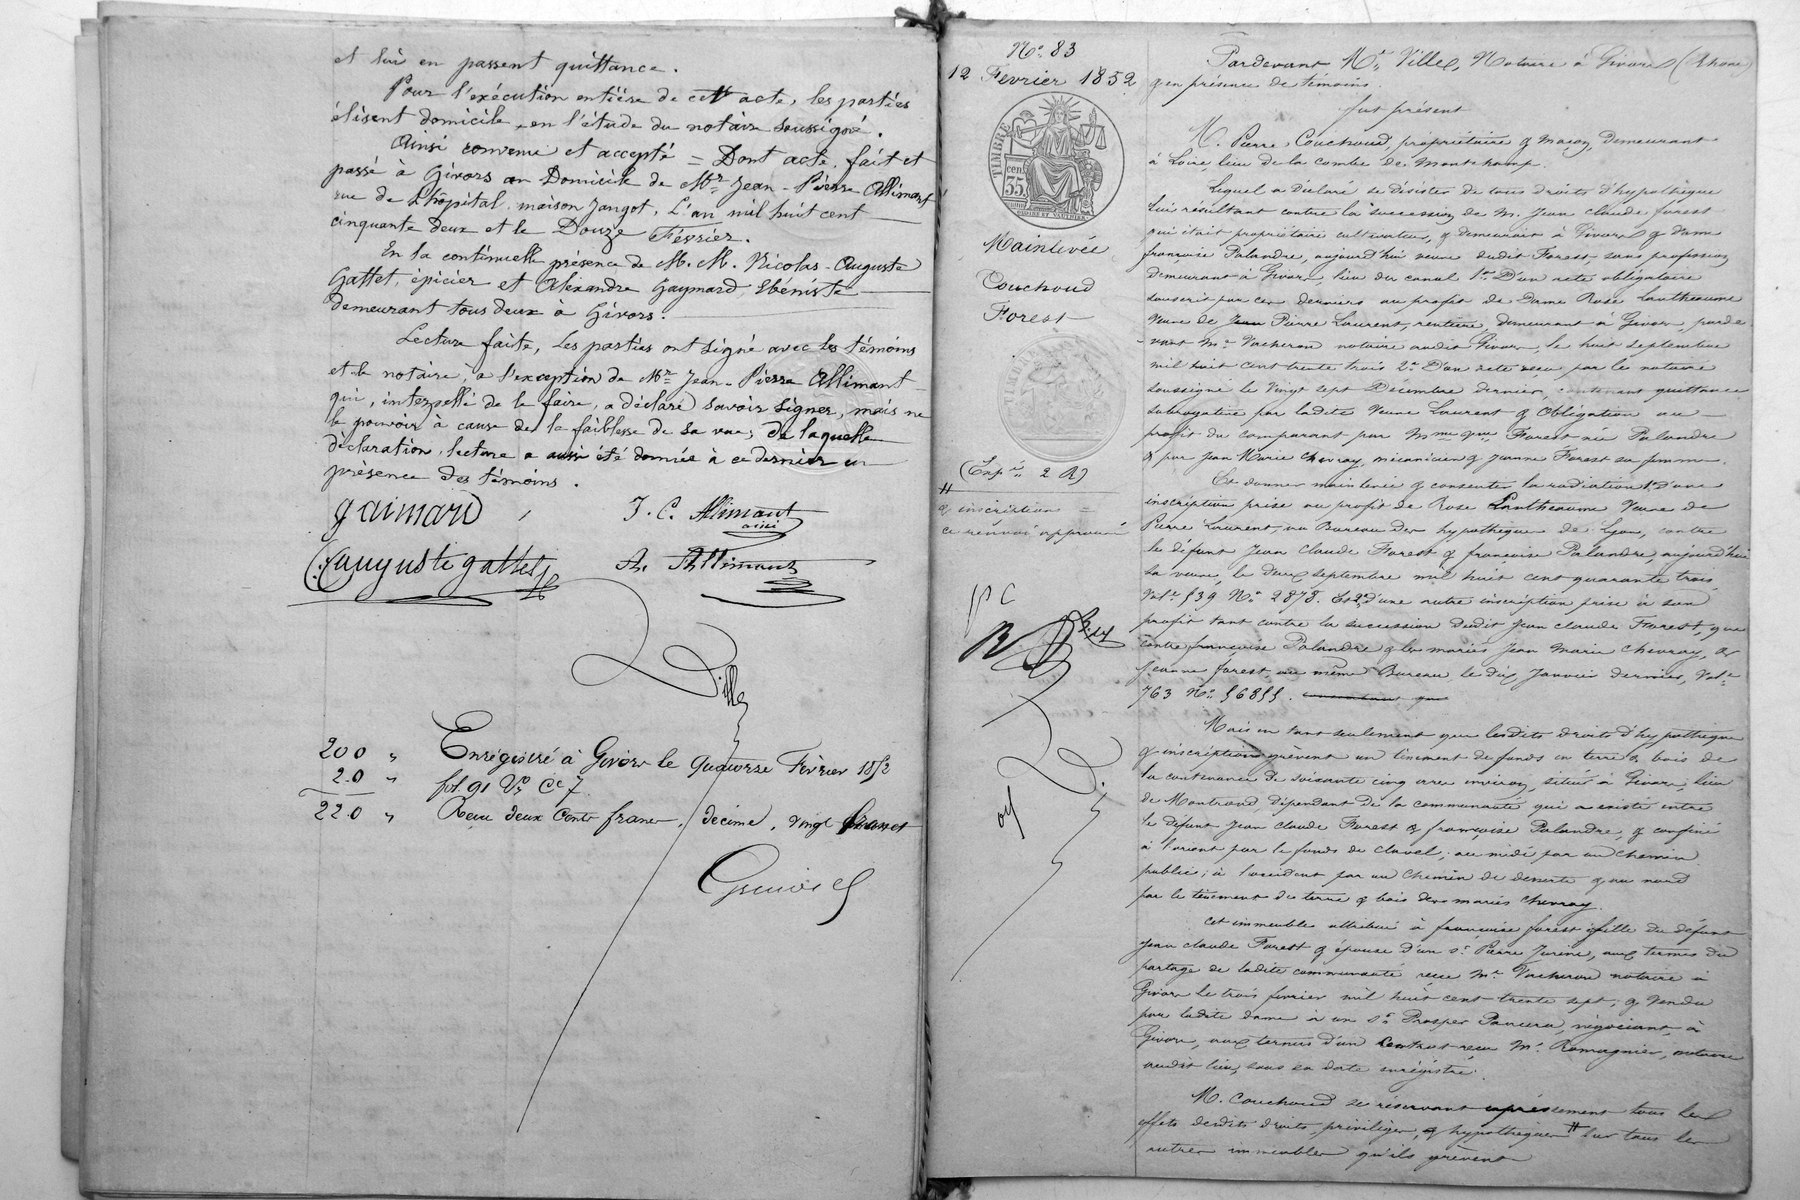 et lui en passent quittance.
Pour l'exécution entière de cett acte, les parties
élisent domicile, en l'étude du notaire soussigné.
Ainsi convenu et accepté = Dont acte, fait et
passé à Givors au Domicile de Mr. Jean-Pierre Allimant
rue de L'hôpital, maison Jangot, L'an mil huit cent
cinquante deux et le Douze Février.
En la continuelle présence de M. M. Nicolas-Auguste
Gattet, épicier et Alexandre Gaymard, Ebéniste
demeurant tous deux à Givors.
Lecture faite, Les parties ont signé avec les témoins
et le notaire, à l'exception de Mr. Jean-Pierre Allimant
qui, interpellé de le faire, a déclaré savoir signer, mais ne
le pouvoir à cause de la faiblesse de sa vue; De laquelle
déclaration, lecture a aussi été donnée à ce dernier en
présence des témoins.
gaimard J. C. Allimant
ainé
auguste gattet A. Allimant
Ville
200 " Enregistré à Givors le quatorze Février 1852
20 " fol. 91 Vo. Ce 7.
220 " Reçu deux Cents francs, décime, vingt francs
No. 83
12 Février 1852
TIMBRE
35 cent
Mainlevée
Couchoud
Forest
(Expn. 2 R)
# & inscription =
ce renvoi approuvé
P C
Pardevant Me. Ville, Notaire à Givors (Rhône)
& en présence de témoins.
fut présent
M. Pierre Couchoud, propriétaire & maçon, Demeurant
à Loire, lieu de la combe de Montchamp.
Lequel a déclaré se désister de tous droits d'hypothèque
lui résultant contre la succession de M. Jean Claude Forest
qui était propriétaire cultivateur, & demeurait à Givors & Dame
françoise Palandre, aujourd'hui veuve dudit Forest sans profession
Demeurant à Givors, lieu du canal 1o. D'un acte obligatoire
souscrit par ces derniers au profit de Dame Rose Lantheaume
Veuve de Jean Pierre Laurent, rentière, demeurant à Givors, parde
vant Me. Vacheron notaire audit Givors, le huit septembre
mil huit cent trente trois 2o. D'un acte reçu par le notaire
soussigné le Vingt sept Décembre dernier, contenant quittance
subrogative par ladite Veuve Laurent & Obligation au
profit du comparant par Mme. Vve. Forest née Palandre
& par Jean Marie Chevray, mécanicien & Jeanne Forest sa femme.
Et donner mainlevée & consentir la radiation 1o. D'une
inscription prise au profit de Rose Lantheaume Veuve de
Pierre Laurent, au Bureau des hypothèques de Lyon, contre
le défunt Jean Claude Forest & françoise Palandre, aujourd'hui
sa veuve, le deux septembre mil huit cent quarante trois
Vole. 539 No. 2878. Et 2o. d'une autre inscription prise à son
profit tant contre la succession dudit Jean Claude Forest, que
contre françoise Palandre & les mariés Jean Marie Chevray, &
Jeanne forest, au même Bureau, le dix Janvier dernier, Vole.
763 No. 56855.
Mais en tant seulement que lesdits droits d'hypothèque
& inscriptions grèvent un tènement de fonds en terre & bois de
la contenance de soixante cinq ares environ, situé à Givors, lieu
de Montrond, dépendant de la communauté qui a existé entre
le défunt Jean Claude Forest & françoise Palandre, & confiné
à l'orient par le fonds de clavel; au midi par un chemin
public; à l'occident par un chemin de desserte & au nord
par le tènement de terre & bois des mariés Chevray.
Cet immeuble attribué à françoise forest fille du défunt
Jean claude Forest & épouse d'un Sr. Pierre Jurine, aux termes du
partage de ladite communauté reçu Me. Vacheron notaire à
Givors le trois février mil huit cent trente sept; & Vendu
par ladite dame à un Sr. Prosper négociant à
Givors, aux termes d'un Contrat reçu Me. Romagnier, notaire
audit lieu, sous sa date enrégistré.
M. Couchoud se réservant expressement tous les
effets desdits droits, privilèges, & hypothèques # sur tous les
autres immeubles qu'ils grèvent